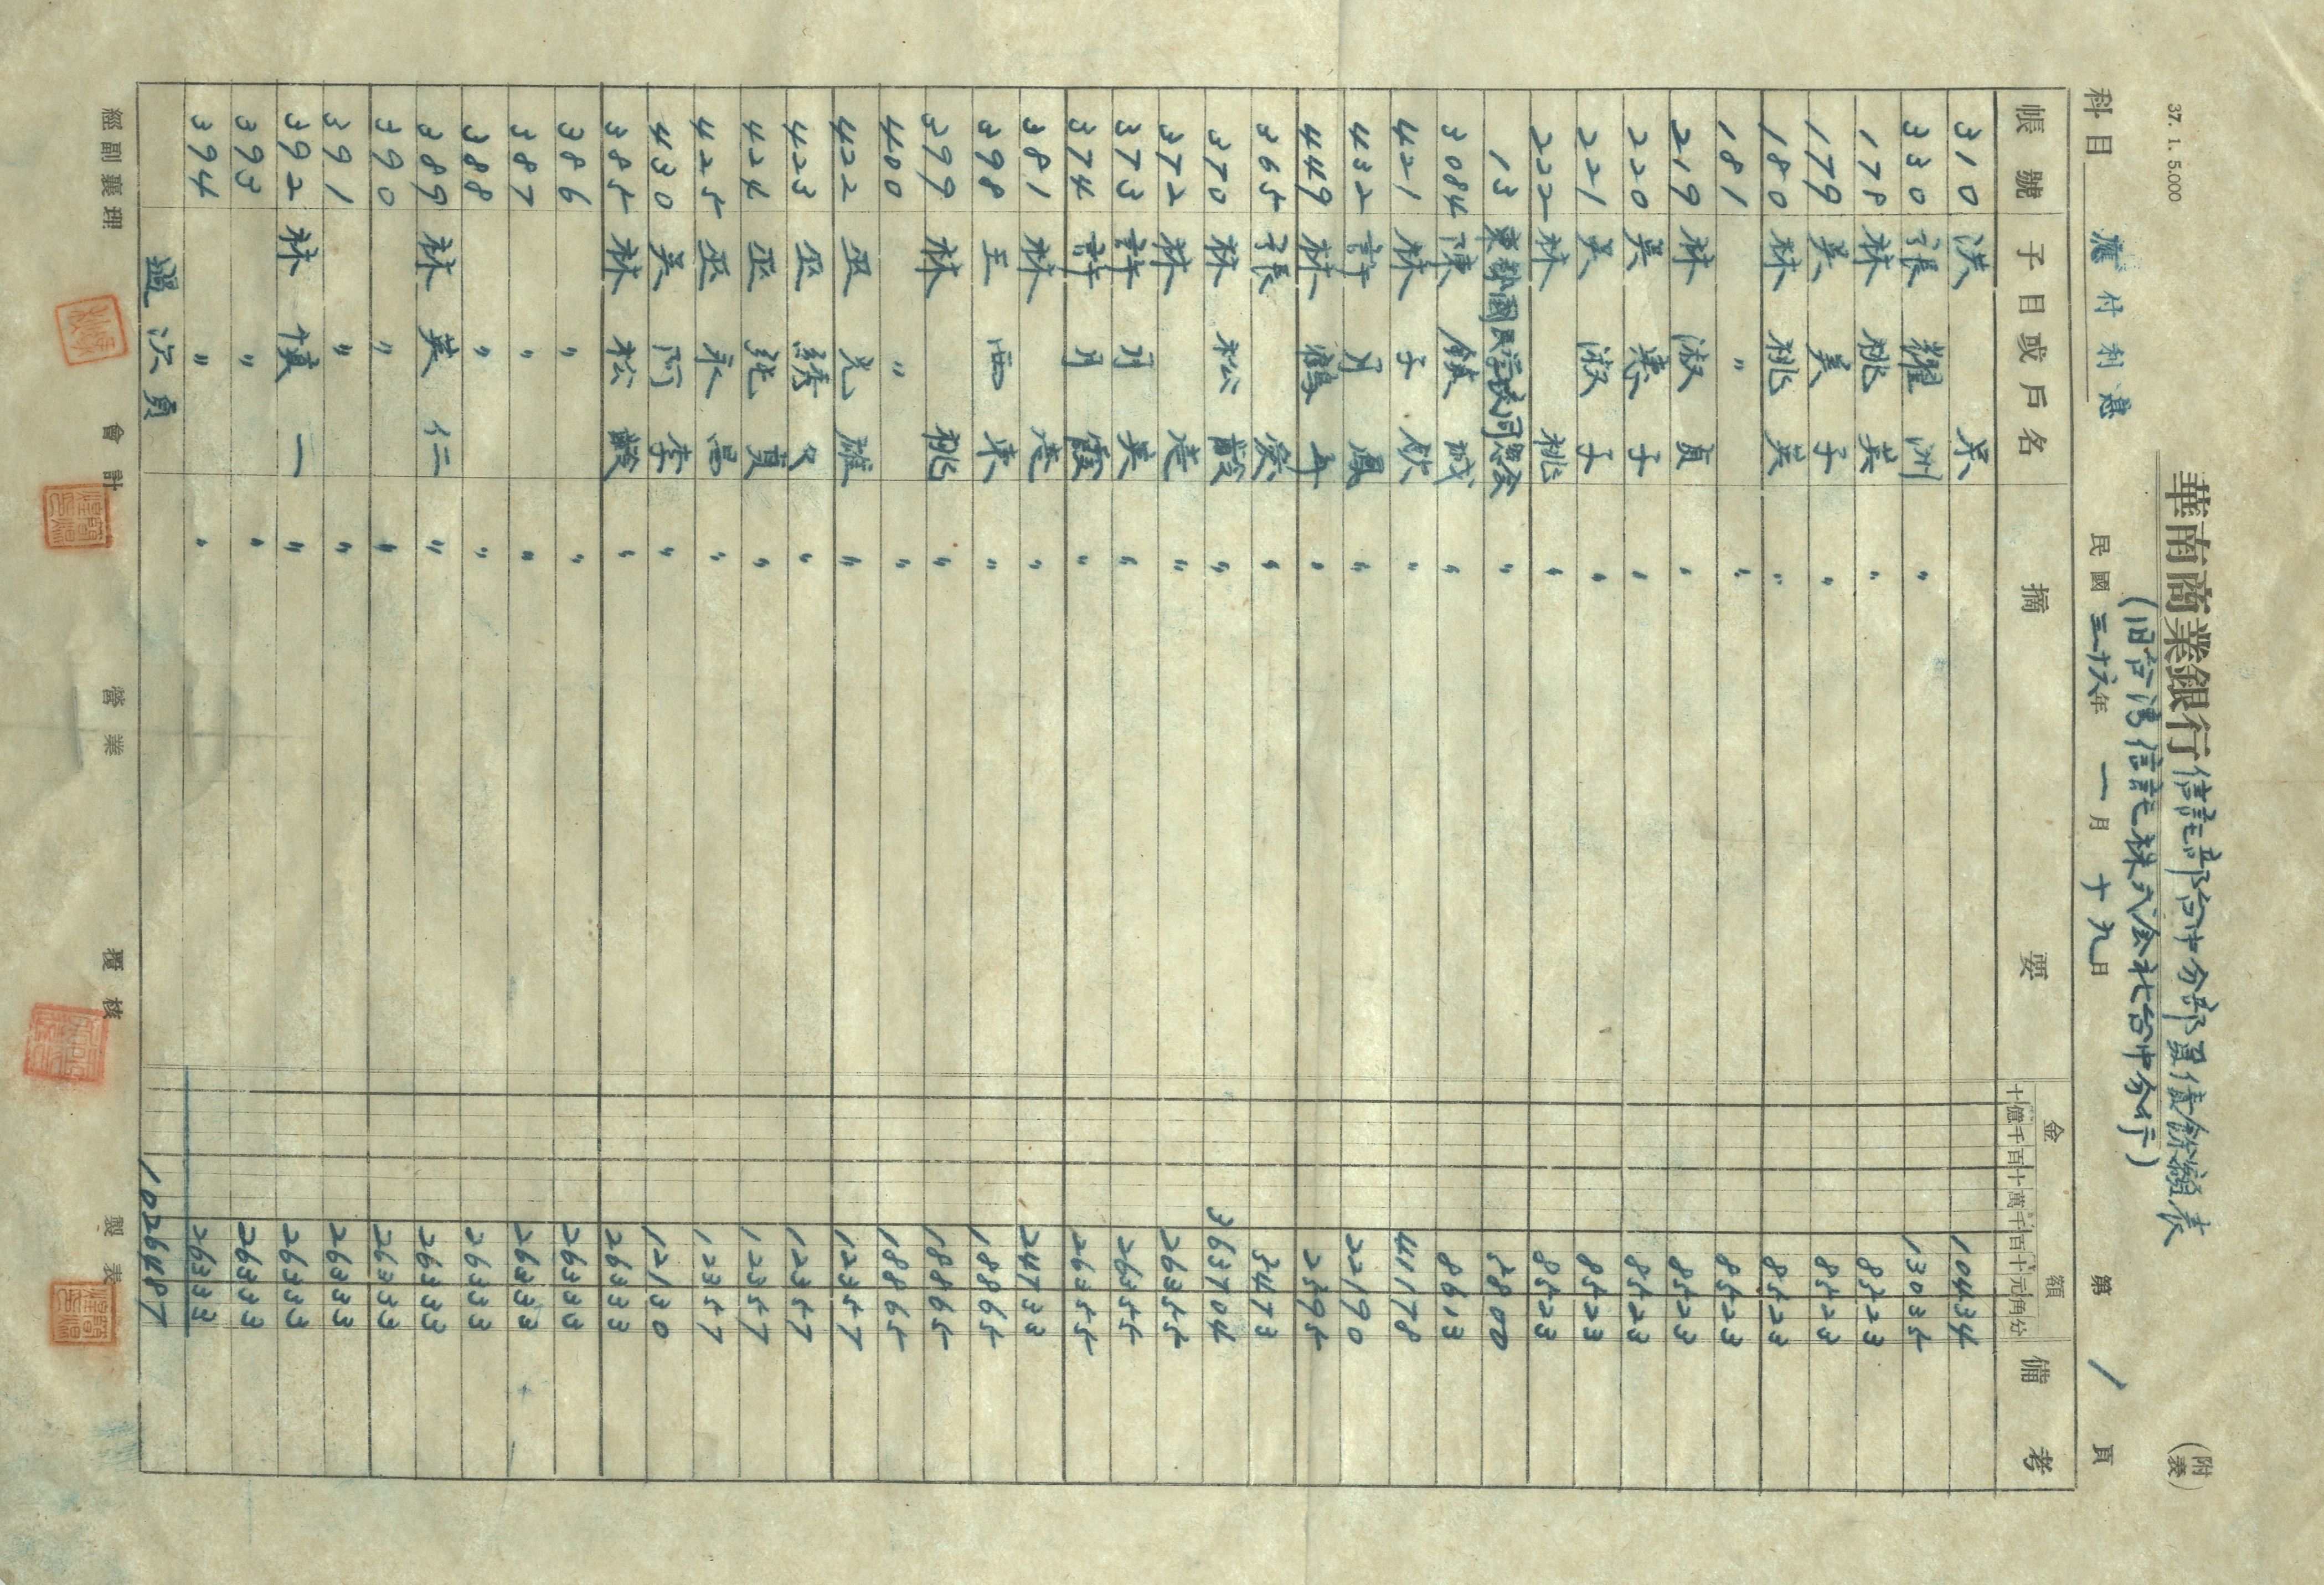 37. 1. 5.000
(附表)
華南商業銀行信託部台中分部負債餘額表
(旧台湾信託株式会社台中分行)
科目 應付利息 民國三十六年 一月 十九日 第 1 頁
帳號 子目或戶名 摘要 金額 備考
十億千百十萬千百十元角分
310 洪 〃 10434
330 張耀洲 〃 13035
178 林桃英 〃 8523
179 吳美子 〃 8523
180 林桃英 〃 8523
181 〃 〃 8523
219 林淑貞 〃 8523
220 吳惠子 〃 8523
221 吳淑子 〃 8523
222 林 桃 〃 8523
13 東勢國民学校同窓会 〃 52800
3084 陳鎮城 〃 8613
421 林子欽 〃 41178
432 許月鳳 〃 22190
449 林鶴年 〃 2595
365 張 〃 5473
370 林松齡 〃 363704
372 林 〃 26355
373 許月英 〃 26355
374 許月霞 〃 26355
381 林 〃 24733
398 王西東 〃 18865
399 林 桃 〃 18865
400 〃 〃 18865
422 巫光雄 〃 12357
423 巫綉 〃 12357
424 巫 〃 12357
425 巫永昌 〃 12357
430 吳阿李 〃 12130
385 林松齡 〃 26333
386 〃 〃 26333
387 〃 〃 26333
388 〃 〃 26333
389 林英仁 〃 26333
390 〃 〃 26333
391 〃 〃 26333
392 林慎一 〃 26333
393 〃 〃 26333
394 〃 〃 26333
過次頁 1026487
經副襄理 會計 營業 覆核 製表